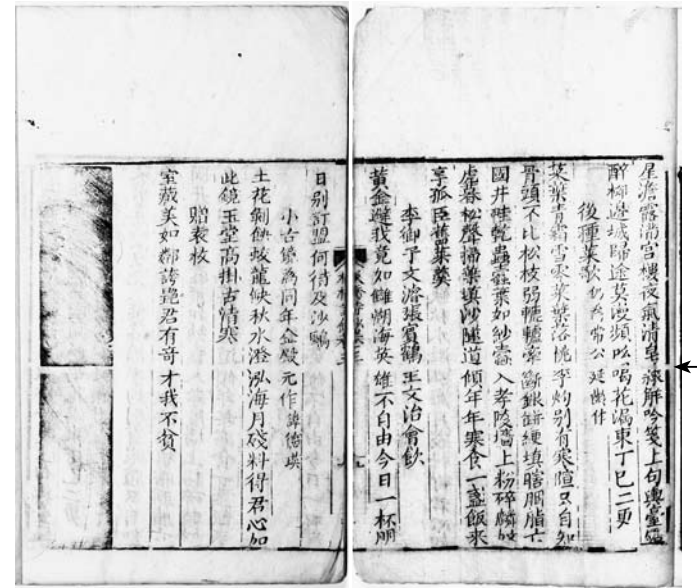 星澹露滿宮樓夜氣清星綠解吟箋上句輿臺
醉柳邊城歸途莫漫頻吆喝花漏東丁已二更
後種菜歌 為常公延齡作
菜葉青霜雪零菜葉落桃李灼別有寒暄只自知
骨頭不比松枝弱轆轤索斷銀缾綆填瞎胭脂亡
國井畦乾蟲蠹葉如紗蠹入孝陵墻上粉碎麟
虛春松聲掃藥填沙隧道傾年年寒食一盞飯來
享孤臣薦菜羹
李御子文濬張賓鶴王文治會飲
黃金避我竟如讎湖海英雄不自由今日一杯明
日別訂盟何待及沙鷗
小古鏡為同年金殿元作 諱德瑛
土花剝蝕蛟龍缺秋水澄泓海月殘料得君心如
此鏡玉堂高掛古清寒
贈袁枚
室藏美如鄰誇艷君有奇才我不貧